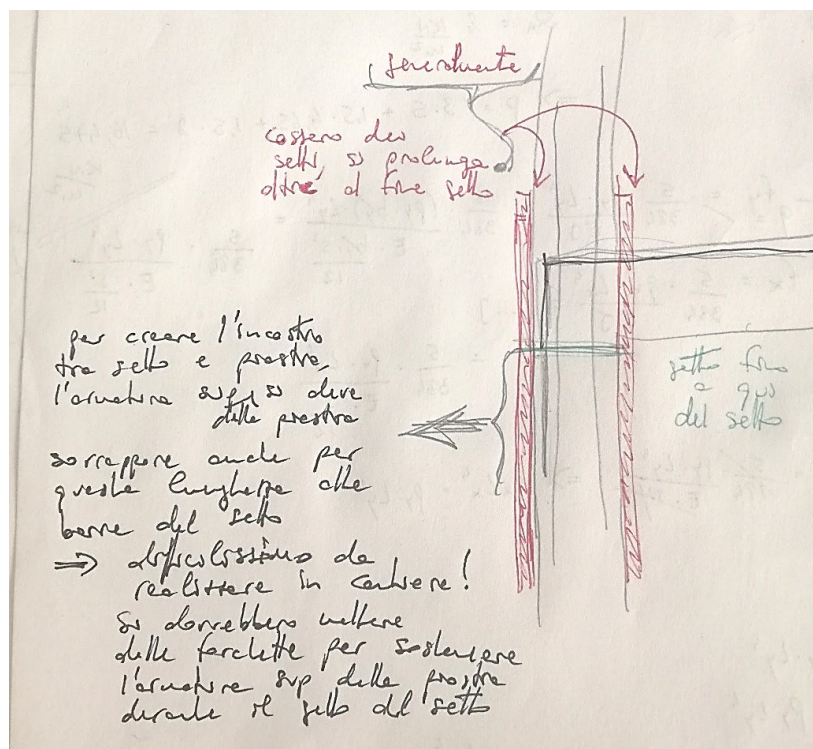 generalmente
cassero dei
setti, si prolunga
oltre al fine setto
per creare l'incastro
tra setto e piastra,
l'armatura sup. si deve
della piastra
sovrappore anche per
questa lunghezza alle
barre del setto
⇒ difficilissimo da
realizzare in cantiere!
si dovrebbero mettere
delle forchette per sostenere
l'armatura sup della piastra
durante il getto del setto
getto fino
a qui
del setto